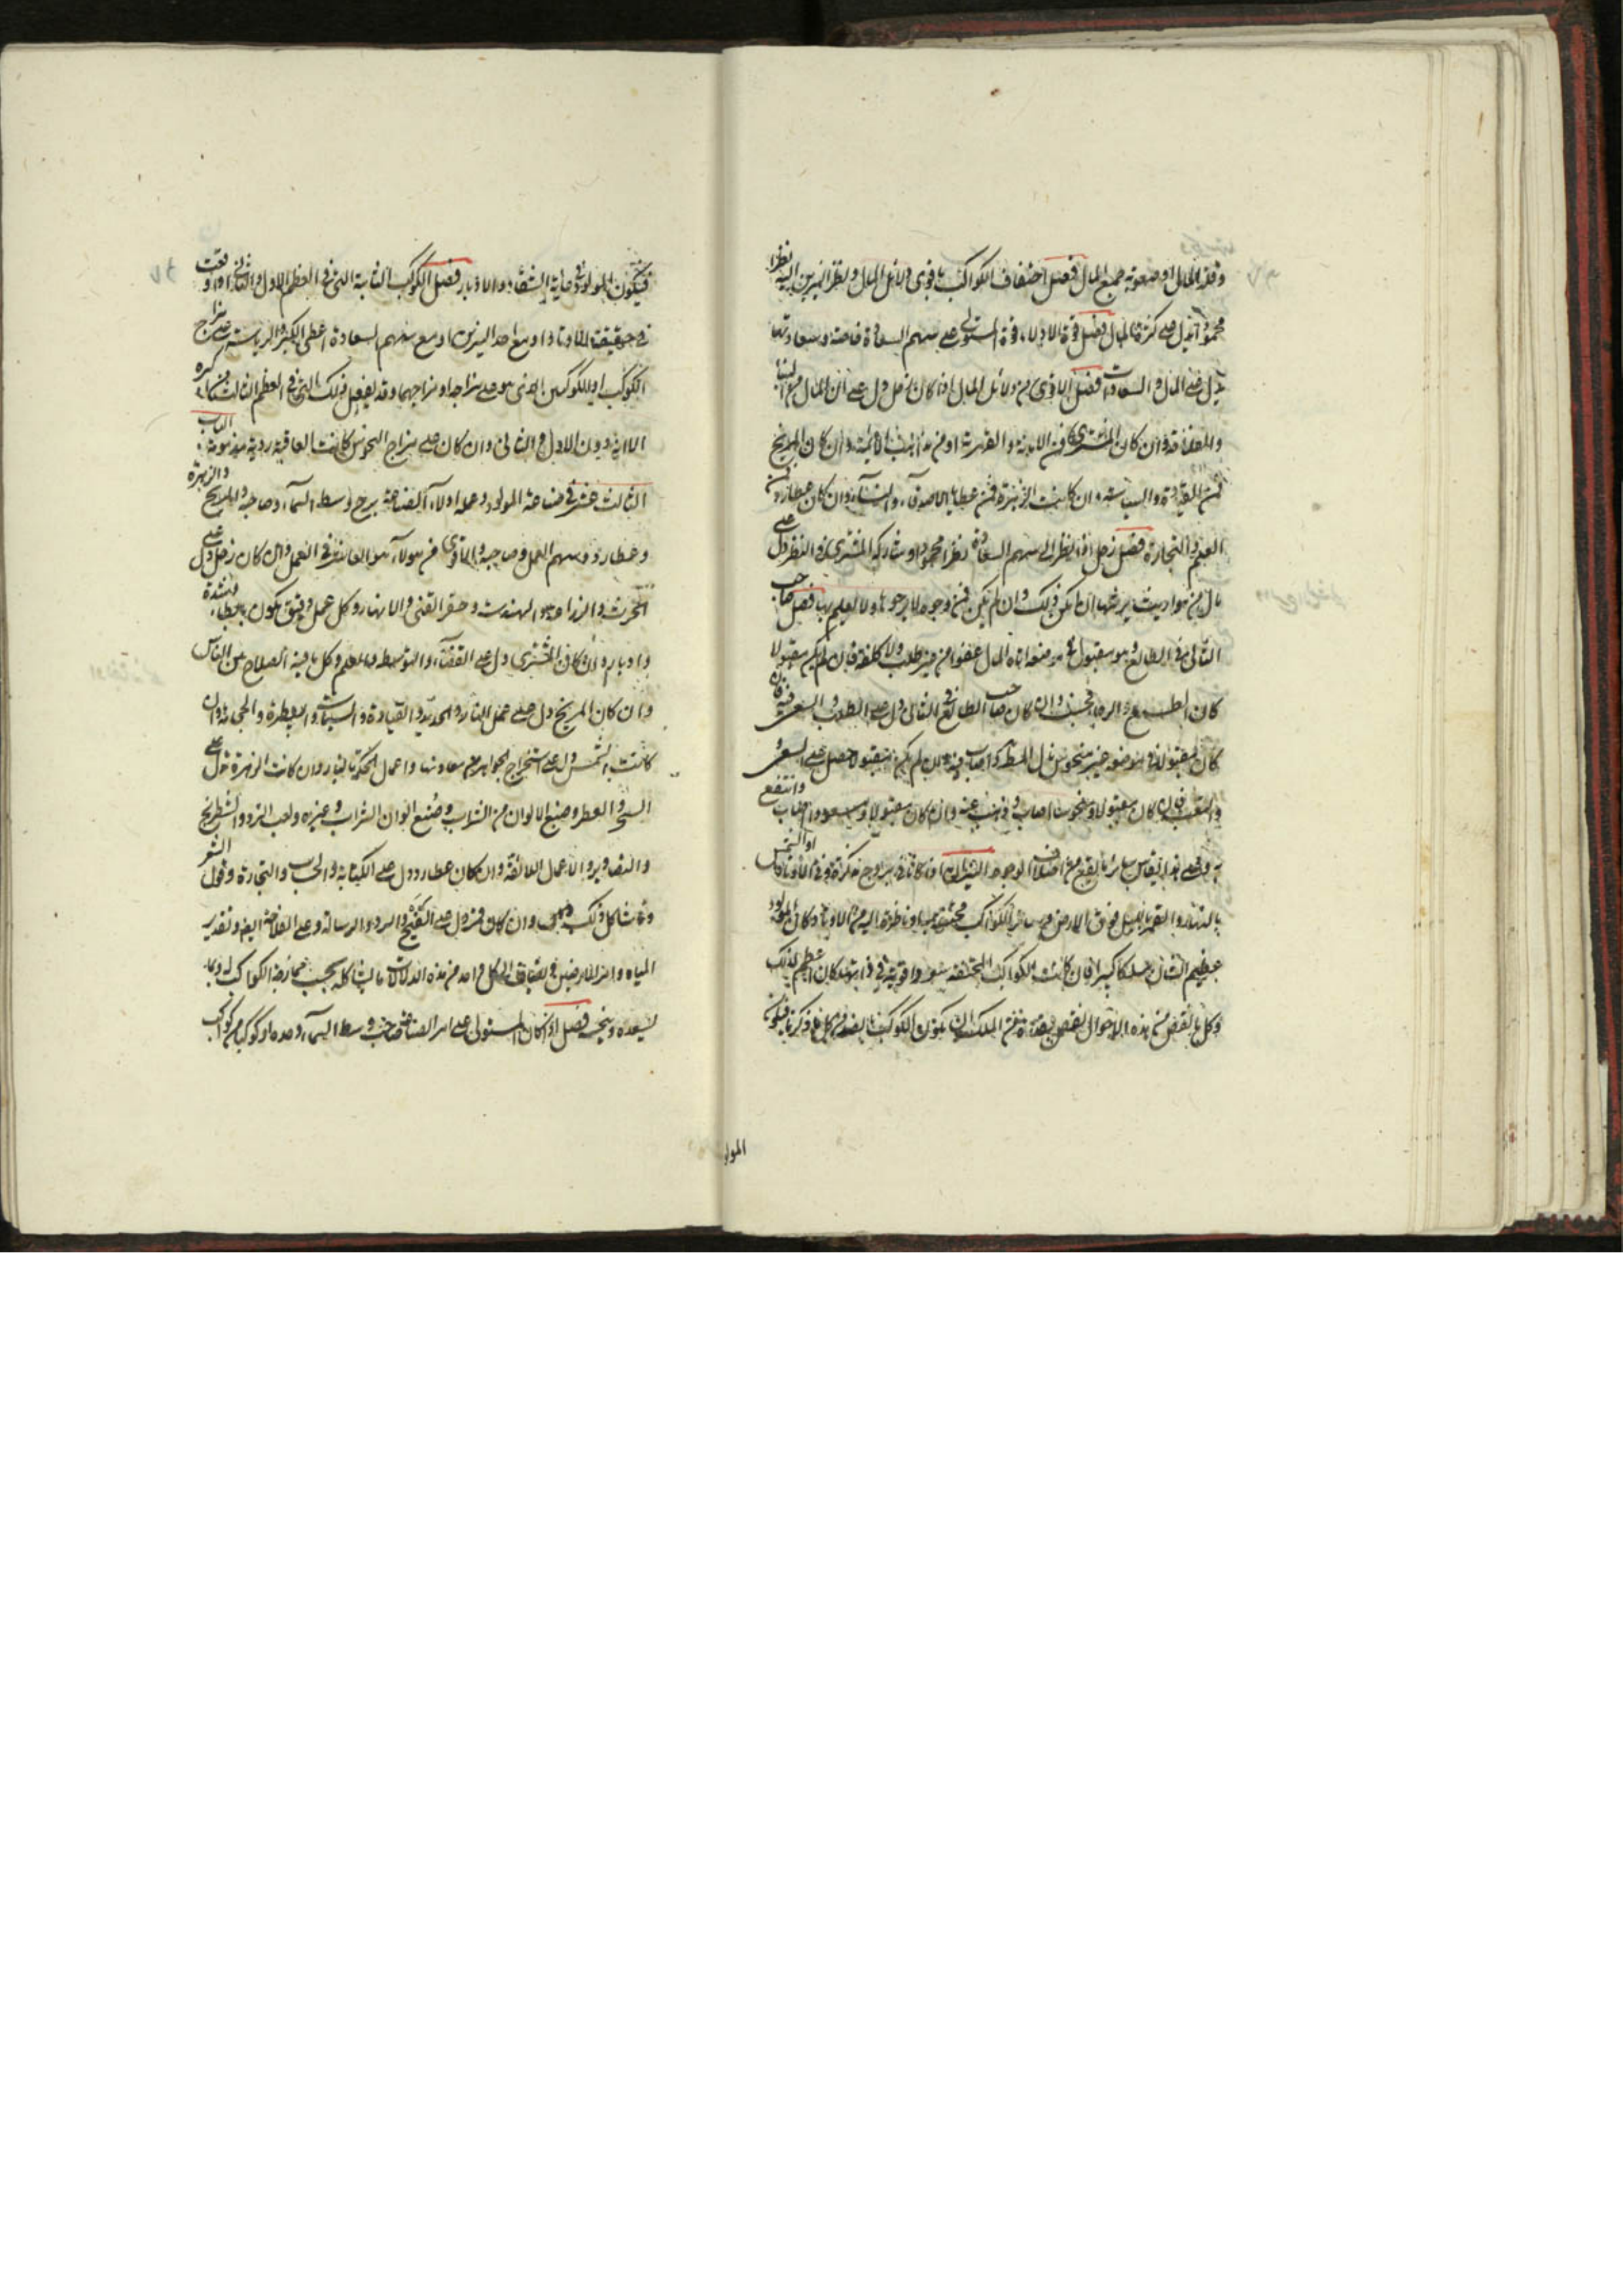 وقلة المال او صعوبة جمع المال فصل اختفاف الكواكب باقوى دلائل المال ونظر النيرين اليه نظرا
محمودا يدل على كثرة المال فصل قوة الادلاء قوة المستولى على سهم السعادة خاصة وسعادتها
يدل على المال والسعادت فصل الاقوى من دلائل المال اذا كان زحل دل على ان المال من البناء
والفلاحة وان كان المشترى فمن الامانة والقهرمة او من مذاهب الائمة وان كان المريخ
فمن القيادة والسياسة وان كانت الزهرة فمن عطايا الاصدقاء والنساء وان كان عطارد فمن
العلم والتجارة فصل زحل اذا نظر الى سهم السعادة نظرا محمودا وشاركه المشترى فى النظر دل على
مال من مواريث يرثها ان امكن ذلك وان لم يكن فمن وجوه لا يرجوها ولا يعلم بها فصل صاحب
الثانى فى الطالع وهو مقبول فى موضعه اتاه المال عفوا من غير طلب ولا كلفة فان لم يكن مقبولا
كان الطمع والرجا فحسب وان كان صاحب الطالع فى الثانى دل على الطلب والسعى فيه فان
كان مقبولا فى موضعه غير منحوس نال المطلوب واصاب منه وان لم يكن مقبولا حصل على السعى
والتعب فان كان مقبولا ومنحوسا اصاب وذهب عنه وان كان مقبولا ومسعودا اصاب وانتفع
به وعلى هذا القياس سائر ما يقع من اختلاف الوجوه النيران اذا كانا فى بروج مذكرة وفى الاوتاد او الشمس
بالنهار والقمر بالليل فوق الارض وسائر الكواكب محتفة بهما او ناظرة اليهم من الاوتاد كان المولود
عظيم الشان ملكا كبيرا فان كانت الكواكب المحتفة سعودا قوية فى ذاتها كان اعظم لذلك
وكل ما نقص من هذه الاحوال نقص بقدره من الملك الى ان يكون الكوكب بالضد من كل ما ذكرنا فيكون
المولو
فيكون المولود فى غاية الشقاء والادبار فصل الكواكب الثابتة التى فى العظم الاول والثانى اذا وقعت
فى حقيقة الاوتاد او مع احد النيرين او مع سهم السعادة اعطى الكبر والرياسة على مزاج
الكوكب او الكوكبين الذى هو على مزاجه او مزاجهما وقد يفعل ذلك التى فى العظم الثالث من الكبره
الا انه دون الاول والثانى وان كان على مزاج النحوس كانت العاقبة ردية مذمومة الباب
الثالث عشر فى صناعة المولود وعمله ادلاء الصناعة برج وسط السماء وصاحبه والمريخ والزهرة
وعطارد وسهم العمل وصاحبه والاقوى من هولاء هو العامل فى العمل وان كان زحل دل على
الحرث والزراعة والهندسة وحفر القنى والانهار وكل عمل دقيق يكون بابطاء وشدة
وادبار وان كان المشترى دل على القضاء والتوسط والعلم وكل ما فيه الصلاح بين الناس
وان كان المريخ دل على عمل النار والحديد والقيادة والسياسات والبيطرة والحجامة وان
كانت الشمس دل على استخراج الجواهر من معادنها واعمال الحكمة بالنار وان كانت الزهرة دل على
السحر والعطر وصبغ الالوان من الثياب وصنع الوان الشراب وغيره ولعب النرد والشطرنج
والتصاوير والاعمال اللائقة وان كان عطارد دل على الكتابة والحساب والتجارة وقول الشعر
وما شاكل ذلك وان كان قمر دل على الفيج والبرد والرسالة وعلى الفلاحة ايضا وتقدير
المياه والارضين ويضاف الى كل واحد من هذه الدلالات ما يشاكله بحسب ممازجة الكواكب له وما
يسعده وينحسه فصل اذا كان المستولى على امر الصناعة صاحب وسط السماء وحده او كوكبا من كواكب